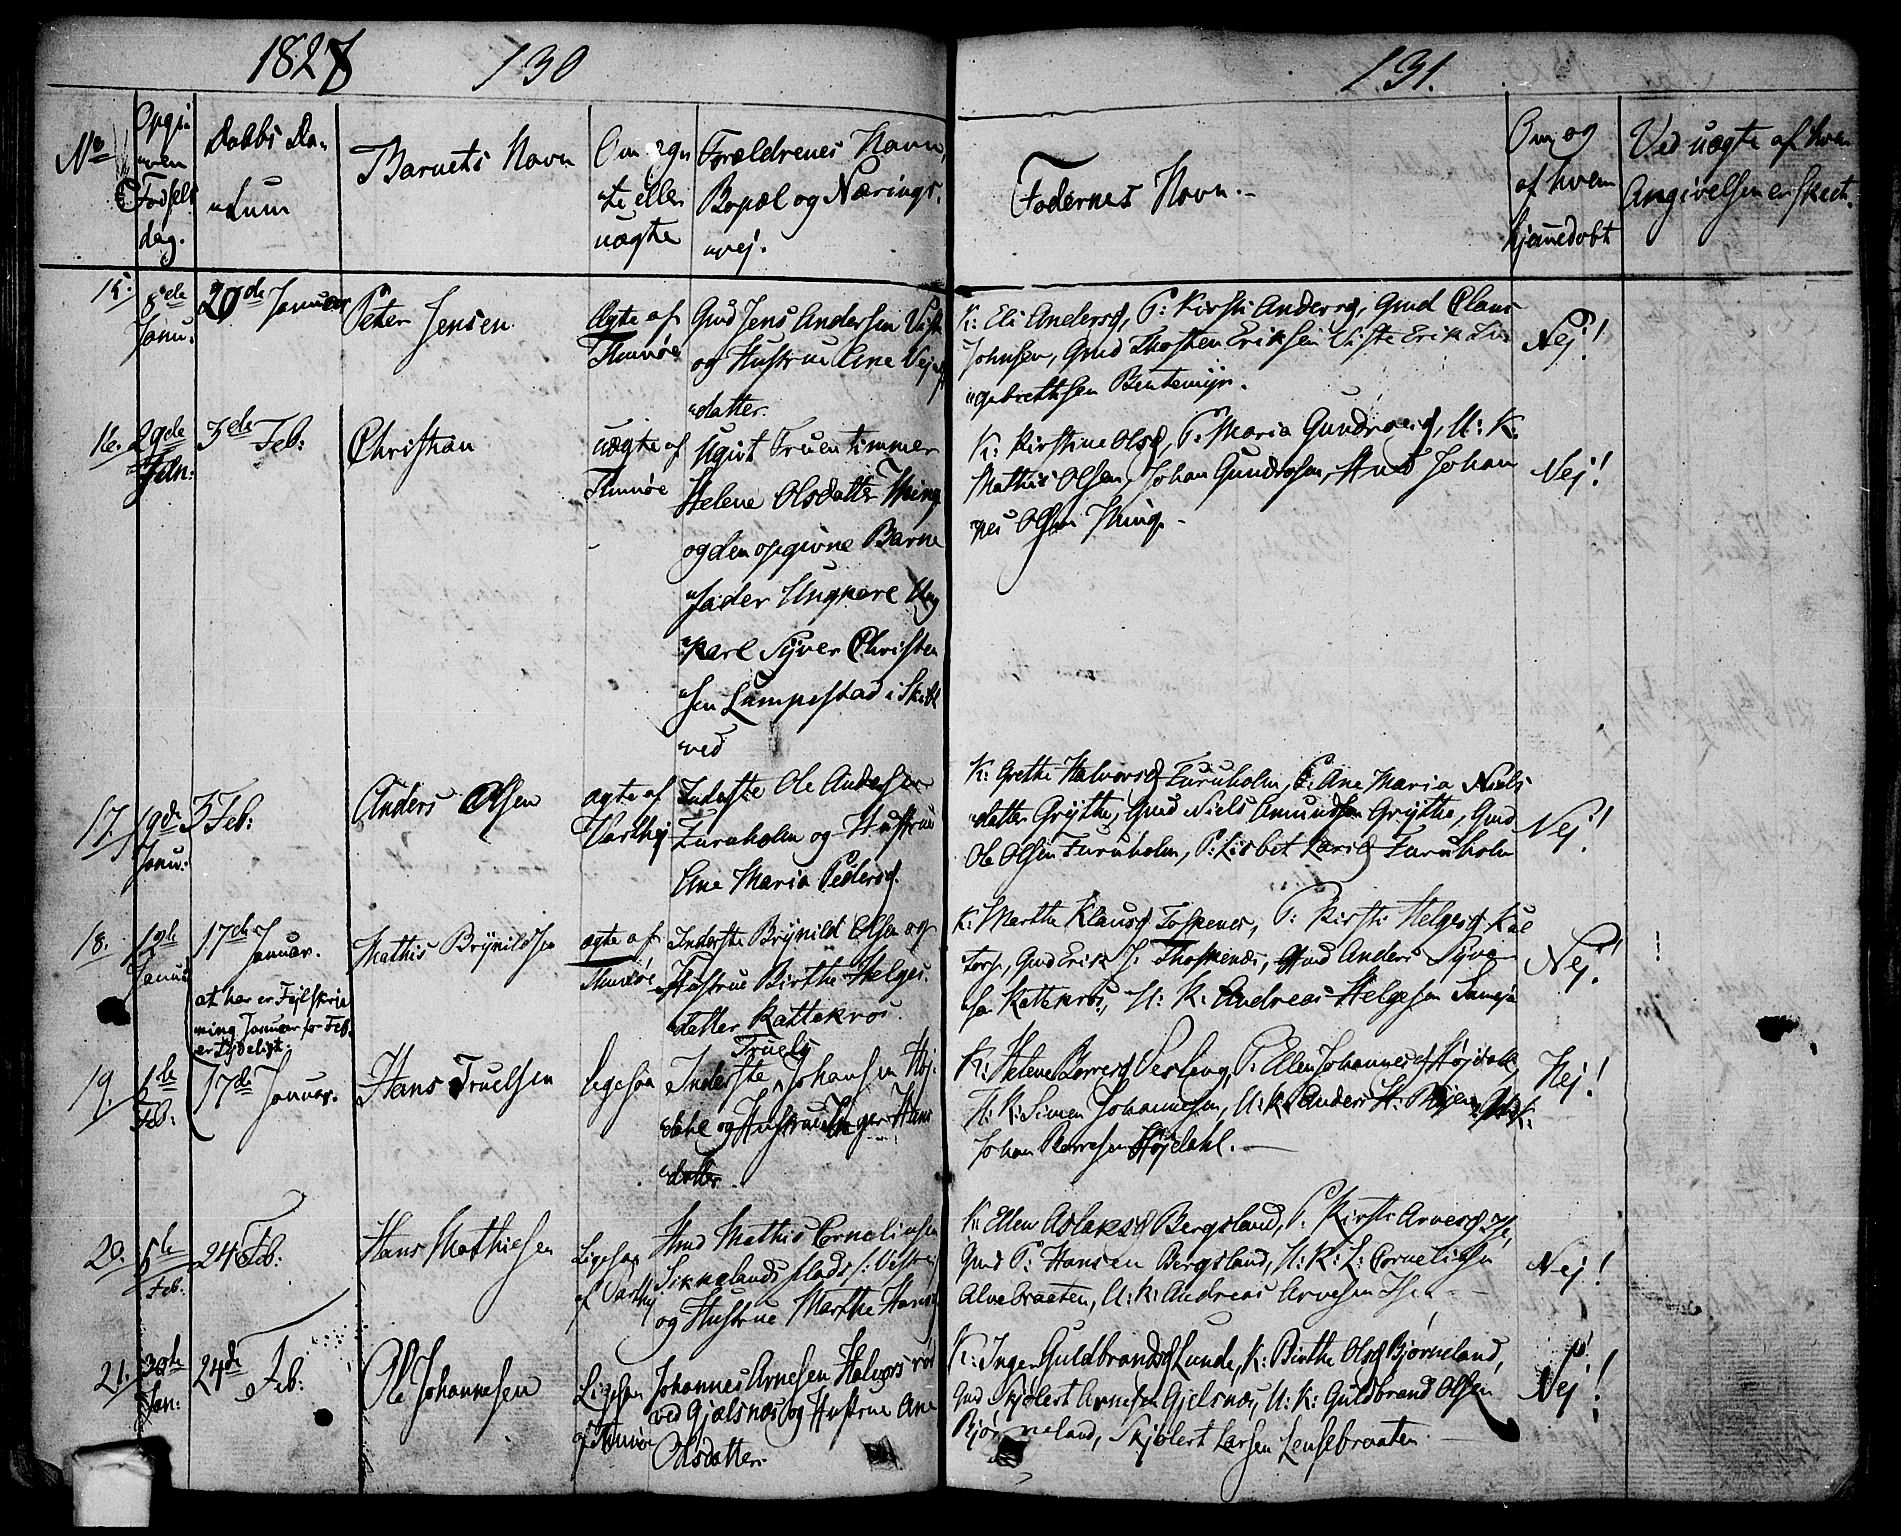 1827
130
No
Opgi
ven
Fødsels
dag.
Daabs Da
tum
Barnets Navn
Om ægn
te eller
uægte
Forældrenes Navn,
Bopæl og Nærings
vej.
15.
8de
Janu.
20de Januar
Peter Jensen
Ægte af
Thunöe
Gmd Jens Andersen
og Hustrue Ane
datter
16.
29de
3de Feb:
Christian
uægte af
Thunöe
Ugivt Fruentimmer
Helene Olsdatter
og den opgivne Barne
fader Ungkarl Ung
karl Syver Christen
sen Lumpestad i Skibt
ved
17.
19de
Janu.
3 Feb:
Anders Olsen
ægte af
Inderste Ole Andersen
Furuholm og Hustrue
Ane Maria Pedersd
18.
Janu
17de
Januar.
at her er Fejlskriv
ning Januar for Feb.
er tydeligt.
Mathis Brynildsen
ægte af
Thunöe
Inderste Brynild Olsen og
Hustrue Birthe Helges
datter Kattekros.
19.
1de
Feb.
17de Januar.
Hans Truelsen
ligesaa
Truels
Inderste Johansen Høj
dahl og Hustrue Inger Hans
datter
20.
5te
Feb.
24 Feb:
Hans Mathiesen
Ligesaa
af
Hmd Mathis Corneliusen
og Hustrue Marthe Hansd
21.
30te
Jan:
24de Feb:
Ole Johannesen
Ligesaa
af Thunöe
Johannes Arnesen
ved Gjælsnæs og Hustrue Ane
Olsdatter
131.
Fadernes Navn.
Om og
af hvem
hjemmedøbt
Ved uægte af hvem
Angivelsen er skeet.
K: Eli Andersd, P: Kirsti Andersd, Gmd Claus
Johnsen, Gmd Thosten Eriksen Erik
gebrettsen
Nej!
K: Kirstine Olsd, P: Maria U: K:
Mathis Olsen, Johan Johan
nes Olsen
Nej!
K: Grethe Halvorsd Furuholm, P: Ane Maria Niels
datter Grytthe, Gmd Niels Amundsen Grytthe, Gmd
Ole Olsen Furuholm, P: Lisbet Larsd Furuholm
Nej!
K: Marthe Klausd P: Kirsti Helgesd
Gmd Erik J: Gmd Anders Syver
sen Kattekros, U: K: Andreas Helgesen
Nej!
K: Helene P: Ellen Johannesd Højdahl,
U: K: Simen Johannesen, U: K: Anders H:
Johan Højdahl.
Nej!
K: Ellen Aslaksd Bergsland, P: Kirsti Arvesd
Gmd P: Hansen Bergsland, U: K: L: Cornelisen
Alvebraaten, U: K: Andreas Arvesen
Nej!
K: Inger Guldbrandsd Lunde, K: Birthe Olsd Bjørneland,
Gmd Skjølert Arnesen Gjelsnæs, U: K: Guldbrand Olsen
Bjørneland, Skjølert Larsen
Nej!